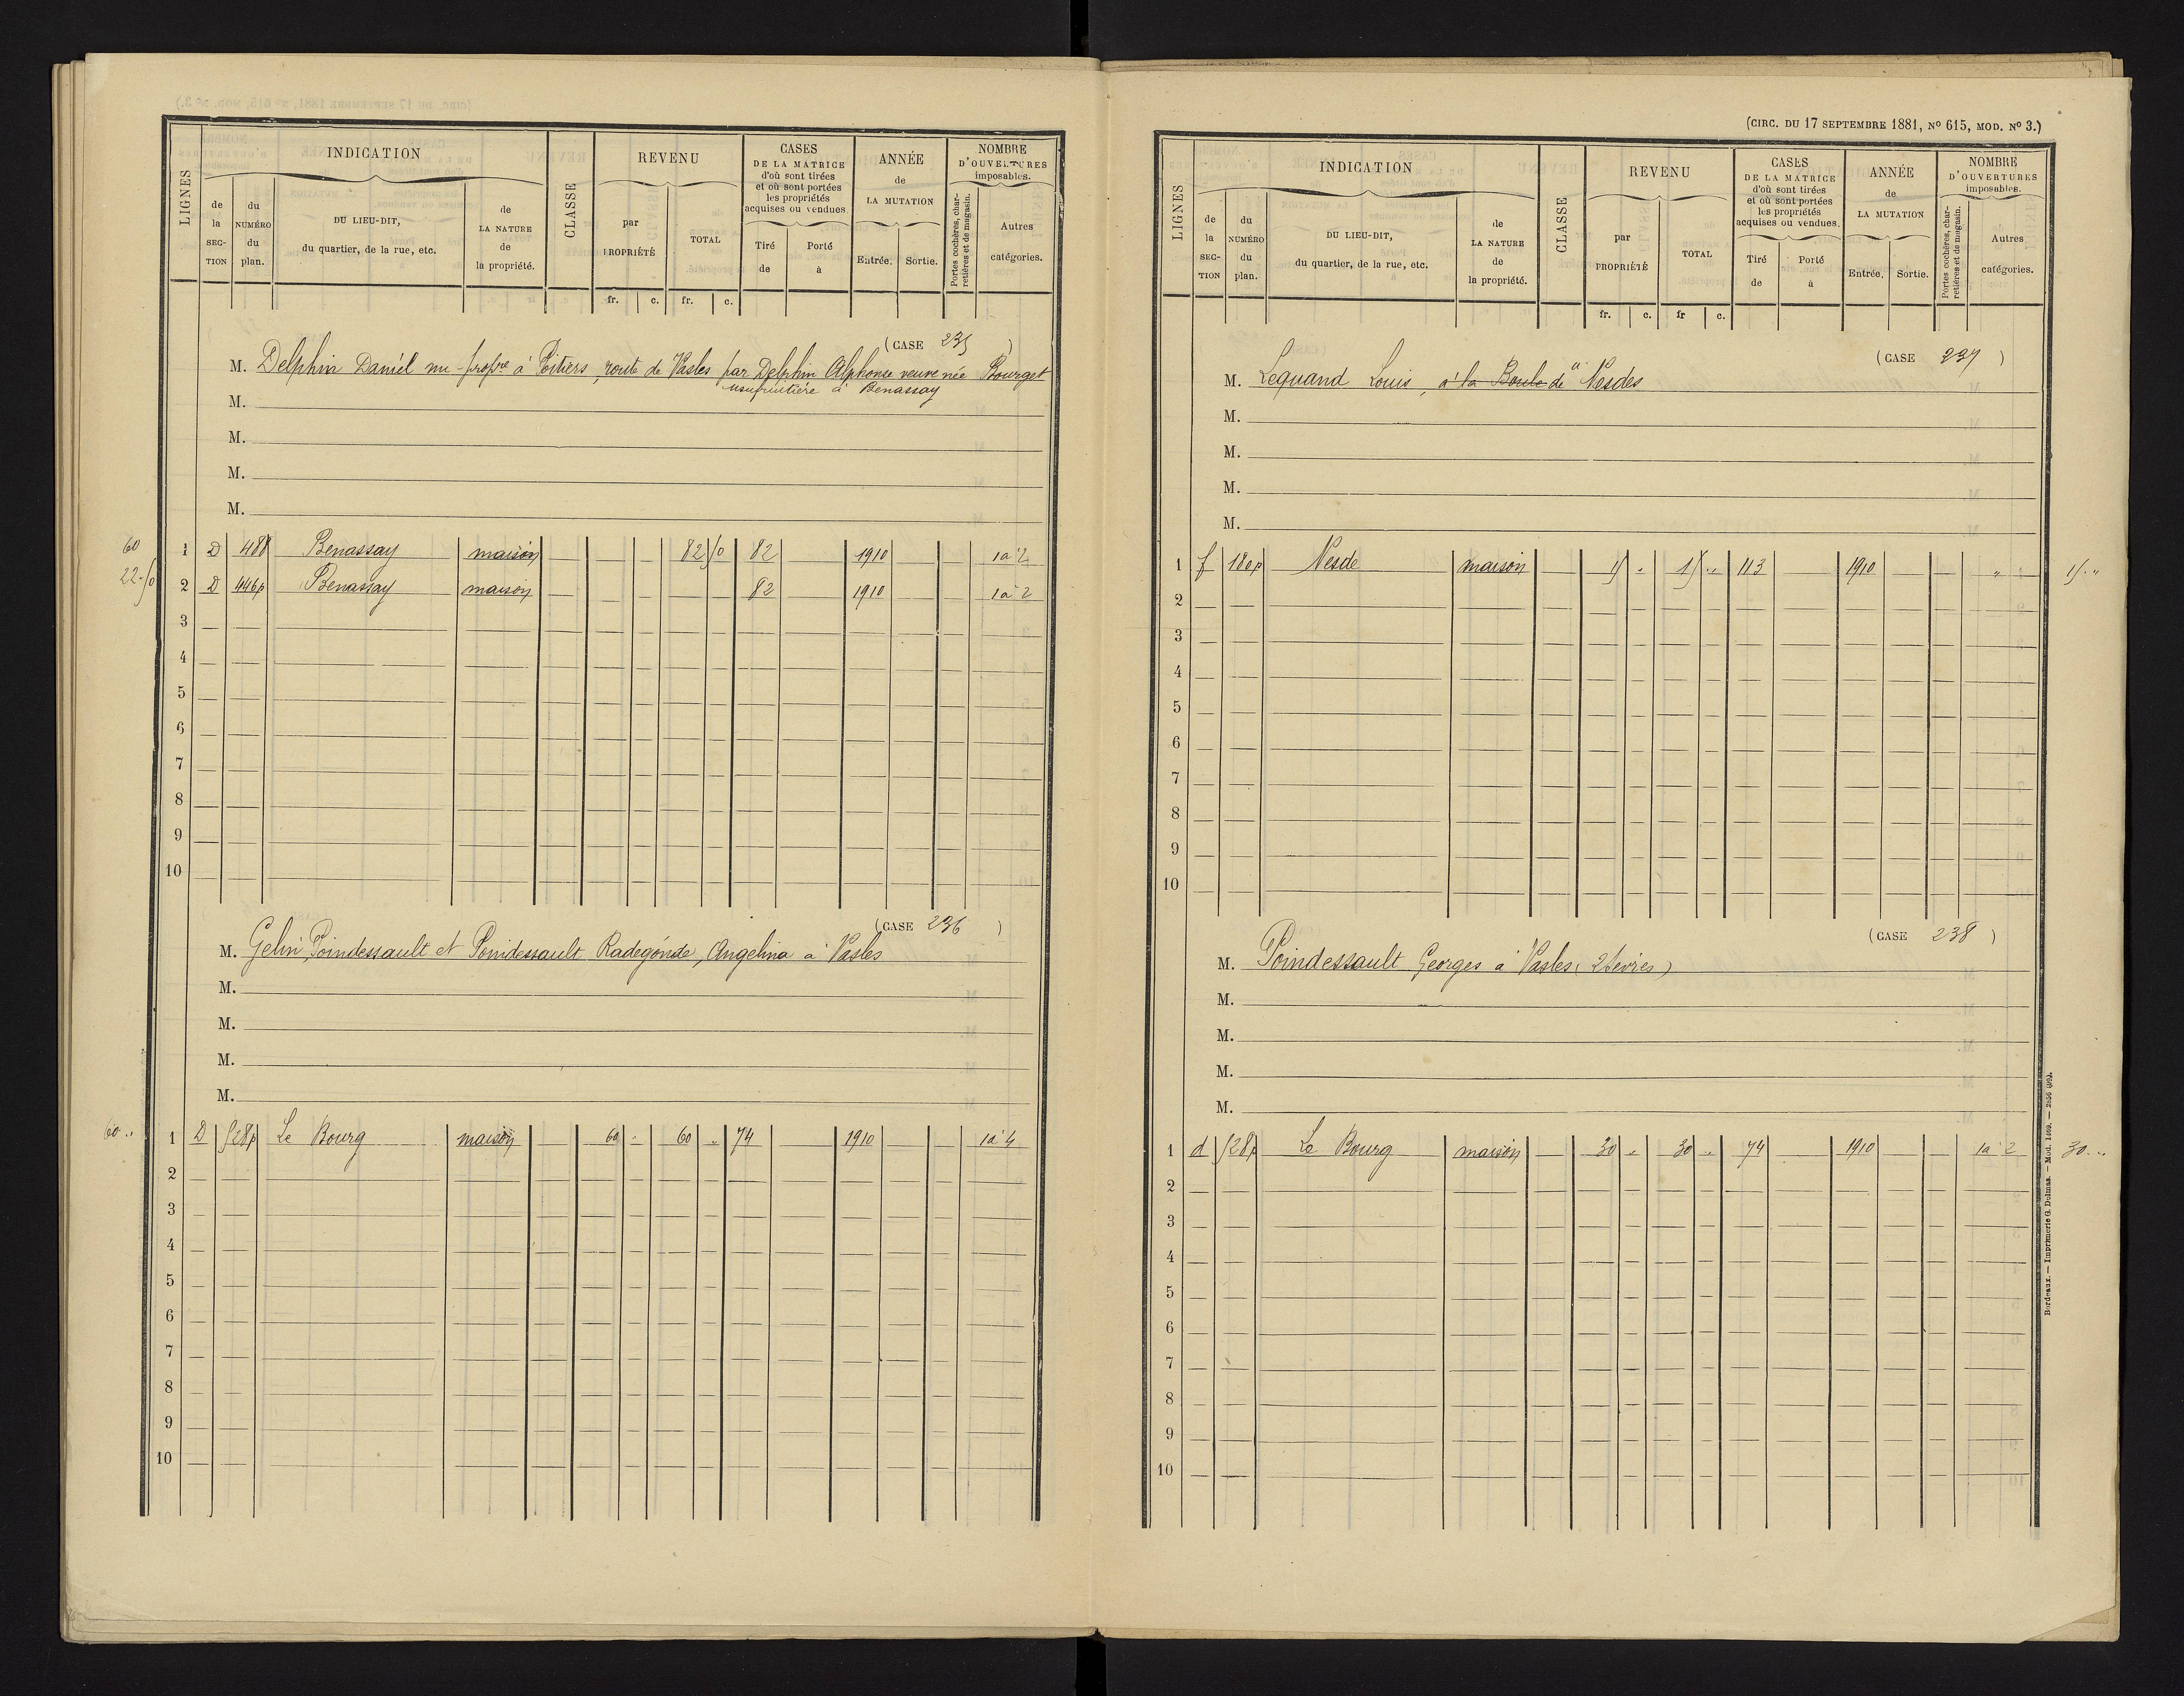 LIGNES
INDICATION
de la SECTION
du NUMÉRO du plan.
DU LIEU-DIT, du quartier, de la rue, etc.
de LA NATURE de la propriété.
CLASSE
REVENU
par PROPRIÉTÉ
TOTAL
fr. c. fr. c.
CASES DE LA MATRICE d'où sont tirées et où sont portées les propriétés acquises ou vendues.
Tiré de
Porté à
ANNÉE de LA MUTATION
Entrée. Sortie.
NOMBRE D'OUVERTURES imposables.
Portes cochères, charretières et de magasin.
Autres catégories.
(CASE 235)
M. Delphin Daniel nu-propre à Poitiers, route de Vasles par Delphin Alphonse veuve née Bourget
usufruitière à Benassay
M.
M.
M.
M.
60 1 D 488 Benassay maison 82 50 82 1910 1 à 2
22.50 2 D 446p Benassay maison 82 1910 1 à 2
3
4
5
6
7
8
9
10
(CASE 236)
M. Gelin, Poindessault et Poindessault Radegonde, Angelina à Vasles
M.
M.
M.
M.
60 " 1 D 528p Le Bourg maison 60 " 60 " 74 1910 1 à 4
2
3
4
5
6
7
8
9
10
(CIRC. DU 17 SEPTEMBRE 1881, Nº 615, MOD. Nº 3.)
LIGNES
INDICATION
de la SECTION
du NUMÉRO du plan.
DU LIEU-DIT, du quartier, de la rue, etc.
de LA NATURE de la propriété.
CLASSE
REVENU
par PROPRIÉTÉ
TOTAL
fr. c. fr c.
CASES DE LA MATRICE d'où sont tirées et où sont portées les propriétés acquises ou vendues.
Tiré de
Porté à
ANNÉE de LA MUTATION
Entrée. Sortie.
NOMBRE D'OUVERTURES imposables.
Portes cochères, charretières et de magasin.
Autres catégories.
(CASE 237)
M. Lequand Louis, à la Boule de à Nesdes
M.
M.
M.
M.
1 f 180p Nesde maison 15 " 15 " 113 1910 " 15 "
2
3
4
5
6
7
8
9
10
(CASE 238)
M. Poindessault Georges à Vasles (2 Sevres)
M.
M.
M.
M.
1 d 528p Le Bourg maison 30 " 30 " 74 1910 1 à 2 30 "
2
3
4
5
6
7
8
9
10
Bordeaux. — Imprimerie G. Delmas. — Mod. 1469. — 2856 (99).